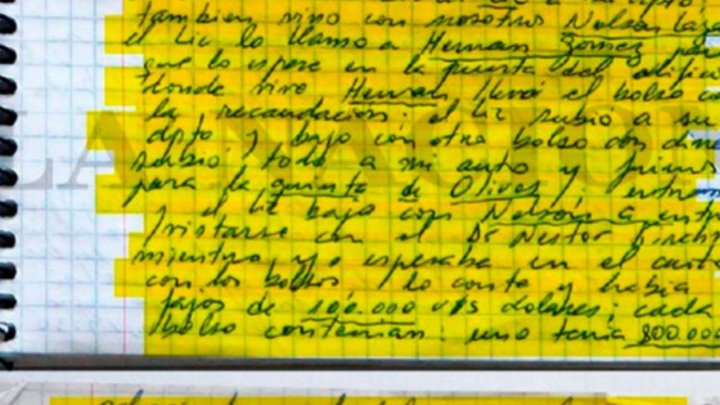 tambien vino con nosotros Nelson Laza
el Lic lo llamo a Hernan Gomez para
que lo espere en la puerta del edificio
donde vive Hernan llevó el bolso con
la recaudación. el Lic subio a su
dpto. y bajo con otro bolso con dine
subio todo a mi auto y fuimos
para la quinta de Olivos. entr
y el Lic bajo con Nelson a entre
vistarse con el Dr Nestor Kirchn
mientras yo esperaba en el auto
con los bolsos lo conte y habia
fajos de 100.000 u$s dolares; cada
bolso contenian uno tenia 800.000
LA NACION